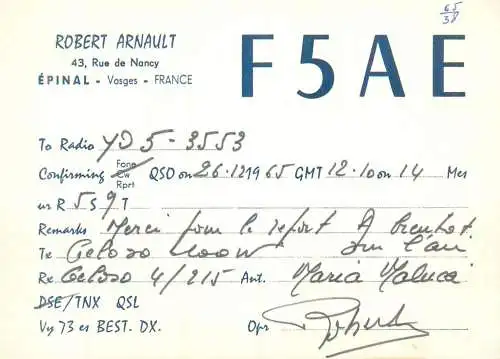 65/38
ROBERT ARNAULT
43, Rue de Nancy
ÉPINAL - Vosges - FRANCE
F5AE
To Radio YO 5-3553
Confirming Fone Cw Rprt QSO on 26.12 1965 GMT 12.10 on 14 Mcs
ur R 5 S 9 T
Remarks Merci pour le report A bientot
Tx Geloso 100W sur l'air
Rx Geloso 4/215 Ant. Maria Maluca
DSE/TNX QSL
Vy 73 es BEST. DX. Opr Robert